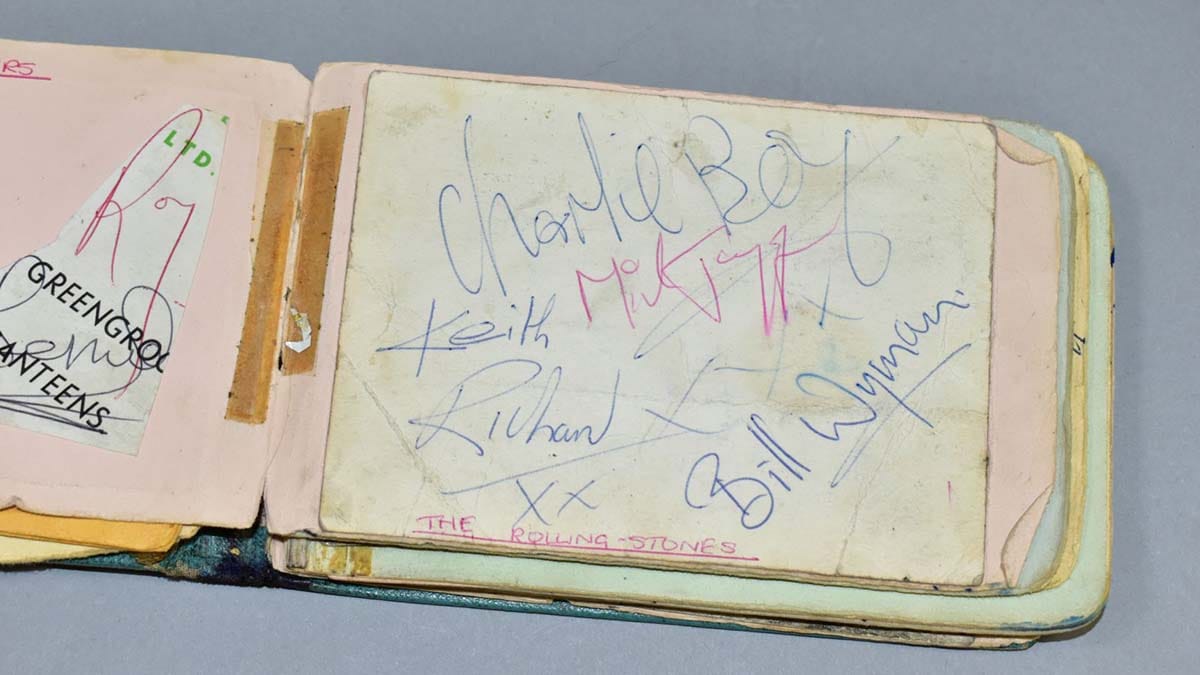 RS
LTD.
Roy
GREENGRO
ANTEENS
Charlie Boy
Mick Jagger
x
Keith
Richard x
xx
Bill Wyman.
THE ROLLING-STONES